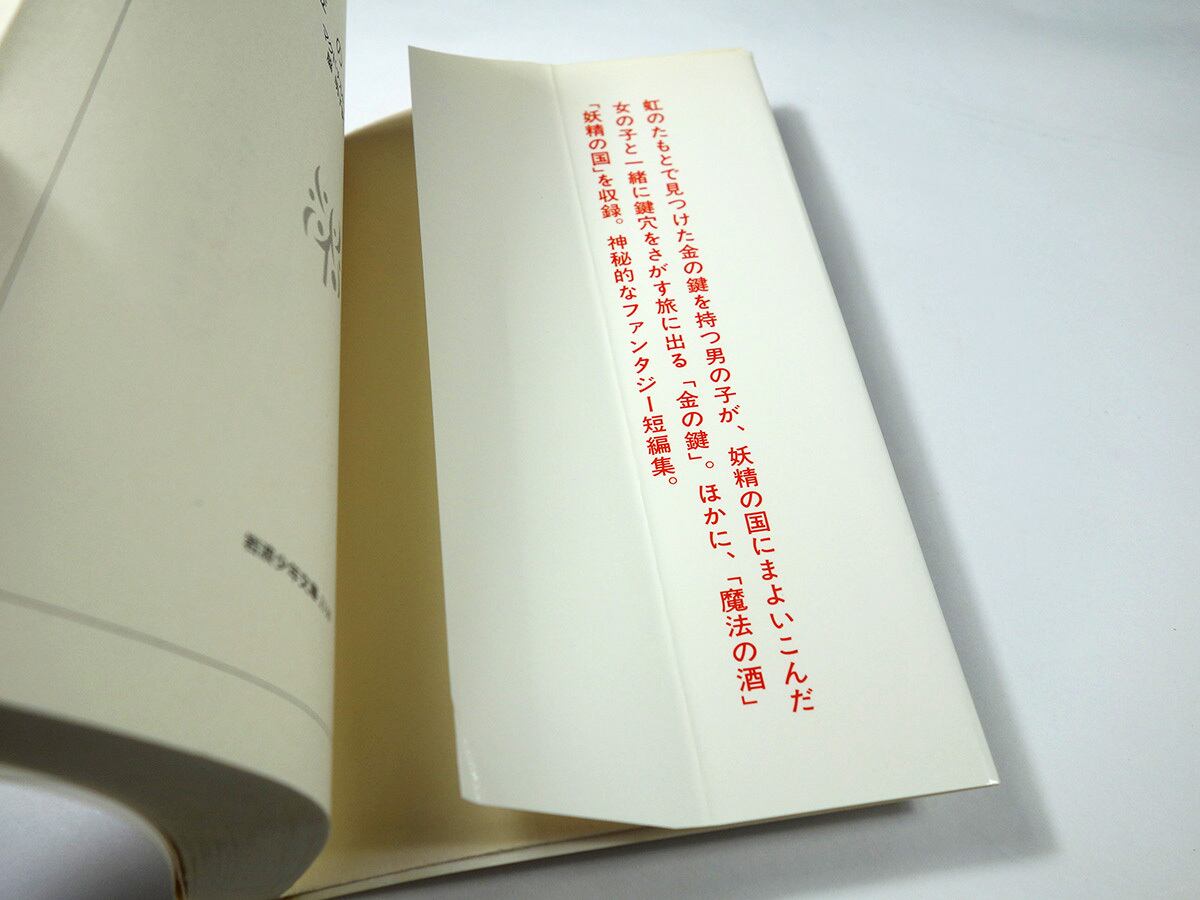 虹のたもとで見つけた金の鍵を持つ男の子が、妖精の国にまよいこんだ
女の子と一緒に鍵穴をさがす旅に出る「金の鍵」。ほかに、「魔法の酒」
「妖精の国」を収録。神秘的なファンタジー短編集。
岩波少年文庫